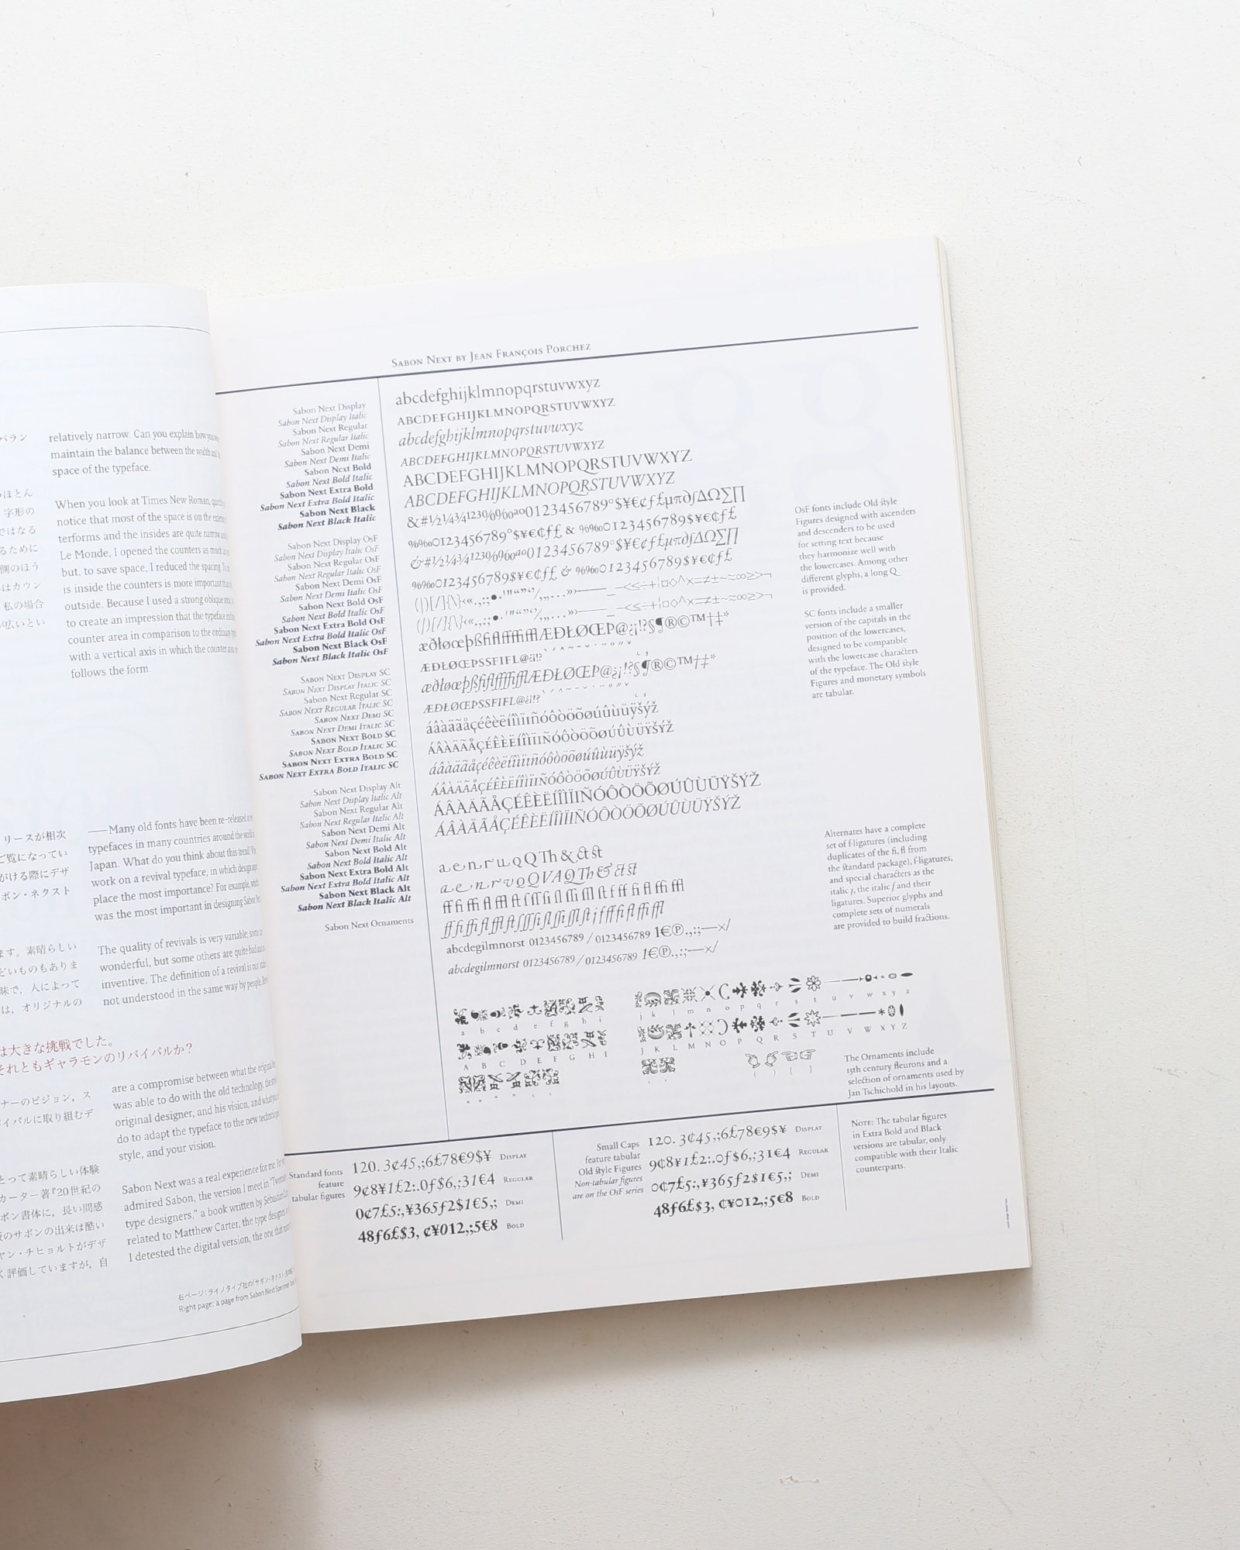 バラン
のほとん
字形の
ではなる
るために
側のほう
はカウン
私の場合
が広いとい
リースが相次
ご覧になってい
がける際にデザ
ボン・ネクスト
ます。素晴らしい
どいものもありま
味で、人によって
は、オリジナルの
は大きな挑戦でした。
それともギャラモンのリバイバルか?
ナーのビジョン、ス
イバルに取り組むデ
とって素晴らしい体験
カーター著『20世紀の
ボン書体に、長い間感
版のサボンの出来は酷い
ヤン・チヒョルトがデザ
く評価していますが、自
relatively narrow. Can you explain how you
maintain the balance between the width and
space of the typeface.
When you look at Times New Roman,
notice that most of the space is on the
terforms and the insides are quite narrow
Le Monde, I opened the counters as much as
but, to save space, I reduced the spacing.
is inside the counters is more important
outside. Because I used a strong oblique
to create an impression that the typeface
counter area in comparison to the ordinary
with a vertical axis in which the counter
follows the form.
——Many old fonts have been re-released
typefaces in many countries around the world
Japan. What do you think about this trend?
work on a revival typeface, in which design
place the most importance? For example,
was the most important in designing Sabon
The quality of revivals is very variable,
wonderful, but some others are quite
inventive. The definition of a revival is not
not understood in the same way by people.
are a compromise between what the original
was able to do with the old technology,
original designer, and his vision, and what
do to adapt the typeface to the new technology
style, and your vision.
Sabon Next was a real experience for me.
admired Sabon, the version I meet in "Twentieth
type designers," a book written by Sebastian
related to Matthew Carter, the type designer
I detested the digital version, the one that
右ページ：ライノタイプ社の「サボン・ネクスト
Right page: a page from Sabon Next Specimen
Sabon Next by Jean François Porchez
Sabon Next Display
Sabon Next Display Italic
Sabon Next Regular
Sabon Next Regular Italic
Sabon Next Demi
Sabon Next Demi Italic
Sabon Next Bold
Sabon Next Bold Italic
Sabon Next Extra Bold
Sabon Next Extra Bold Italic
Sabon Next Black
Sabon Next Black Italic
Sabon Next Display OsF
Sabon Next Display Italic OsF
Sabon Next Regular OsF
Sabon Next Regular Italic OsF
Sabon Next Demi OsF
Sabon Next Demi Italic OsF
Sabon Next Bold OsF
Sabon Next Bold Italic OsF
Sabon Next Extra Bold OsF
Sabon Next Extra Bold Italic OsF
Sabon Next Black OsF
Sabon Next Black Italic OsF
Sabon Next Display SC
Sabon Next Display Italic SC
Sabon Next Regular SC
Sabon Next Regular Italic SC
Sabon Next Demi SC
Sabon Next Demi Italic SC
Sabon Next Bold SC
Sabon Next Bold Italic SC
Sabon Next Extra Bold SC
Sabon Next Extra Bold Italic SC
Sabon Next Display Alt
Sabon Next Display Italic Alt
Sabon Next Regular Alt
Sabon Next Regular Italic Alt
Sabon Next Demi Alt
Sabon Next Demi Italic Alt
Sabon Next Bold Alt
Sabon Next Bold Italic Alt
Sabon Next Extra Bold Alt
Sabon Next Extra Bold Italic Alt
Sabon Next Black Alt
Sabon Next Black Italic Alt
Sabon Next Ornaments
abcdefghijklmnopqrstuvwxyz
ABCDEFGHIJKLMNOPQRSTUVWXYZ
abcdefghijklmnopqrstuvwxyz
ABCDEFGHIJKLMNOPQRSTUVWXYZ
ABCDEFGHIJKLMNOPQRSTUVWXYZ
ABCDEFGHIJKLMNOPQRSTUVWXYZ
&#½¼¾¹²³%‰ªº0123456789°$¥€¢ƒ£µπ∂∫ΔΩ∑∏
%‰0123456789°$¥€¢ƒ£ & %‰0123456789$¥€¢ƒ£
&#½¼¾¹²³%‰ªº0123456789°$¥€¢ƒ£µπ∂∫ΔΩ∑∏
%‰0123456789$¥€¢ƒ£ & %‰0123456789$¥€¢ƒ£
ÆÐŁØŒÞSSFIFL@¿¡!?
ÆÐŁØŒÞSSFIFL@¿¡!?
áâàäãåçéêèëíîìïıñóôòöõøúûùüÿšýž
ÁÂÀÄÃÅÇÉÊÈËÍÎÌÏIÑÓÔÒÖÕØÚÛÙÜŸŠÝŽ
áâàäãåçéêèëíîìïıñóôòöõøúûùüÿšýž
ÁÂÀÄÃÅÇÉÊÈËÍÎÌÏIÑÓÔÒÖÕØÚÛÙÜŸŠÝŽ
ÁÂÀÄÃÅÇÉÊÈËÍÎÌÏIÑÓÔÒÖÕØÚÛÙÜŸŠÝŽ
ÁÂÀÄÃÅÇÉÊÈËÍÎÌÏIÑÓÔÒÖÕØÚÛÙÜŸŠÝŽ
abcdegilmnorst 0123456789 / 0123456789 1€℗.,:;—×/
abcdegilmnorst 0123456789 / 0123456789 1€℗.,:;—×/
a b c d e f g h i
j k l m n o p q r s t u v w x y z
A B C D E F G H I
J K L M N O P Q R S T U V W X Y Z
OsF fonts include Old style
Figures designed with ascenders
and descenders to be used
for setting text because
they harmonize well with
the lowercases. Among other
different glyphs, a long Q
is provided.
SC fonts include a smaller
version of the capitals in the
position of the lowercases,
designed to be compatible
with the lowercase characters
of the typeface. The Old style
Figures and monetary symbols
are tabular.
Alternates have a complete
set of f-ligatures (including
duplicates of the fi, fl from
the standard package), ſ-ligatures,
and special characters as the
italic p, the italic ſ and their
ligatures. Superior glyphs and
complete sets of numerals
are provided to build fractions.
The Ornaments include
15th century fleurons and a
selection of ornaments used by
Jan Tschichold in his layouts.
Standard fonts
feature
tabular figures
120. 3¢45,;6£78€9$¥ Display
9¢8¥1£2:.0ƒ$6,;31€4 Regular
0¢7£5;,¥365ƒ2$1€5,; Demi
48ƒ6£$3, ¢¥012,;5€8 Bold
Small Caps
feature tabular
Old style Figures
Non-tabular figures
are on the OsF series
120. 3¢45,;6£78€9$¥ Display
9¢8¥1£2:.0ƒ$6,;31€4 Regular
0¢7£5;,¥365ƒ2$1€5,; Demi
48ƒ6£$3, ¢¥012,;5€8 Bold
Note: The tabular figures
in Extra Bold and Black
versions are tabular, only
compatible with their Italic
counterparts.